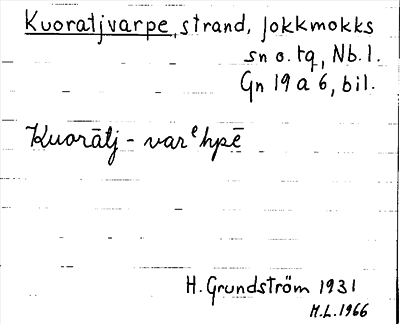 Kuoratjvarpe, strand, Jokkmokks
sn o. tg, Nb. l.
Gn 19 a 6, bil.
Kuorātj - varᵉhpē
H. Grundström 1931
H.L. 1966